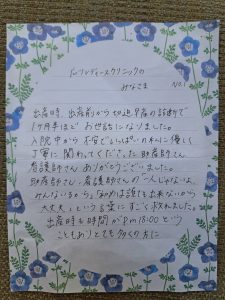 レディースクリニックの
みなさま
No.1
出産時 出産前から切迫早産の診断で
1ヶ月半ほど お世話になりました。
入院中から不安でいっぱいの私に優しく
丁寧に関わってくださった助産師さん
看護師さん ありがとうございました。
助産師さん、看護師さんが「一人じゃないよ、
みんないるから」「なければ誰でも出来ないから
大丈夫」という言葉にすごく救われました。
出産時も時間がPM18:00という
こともあり とても多くの方に